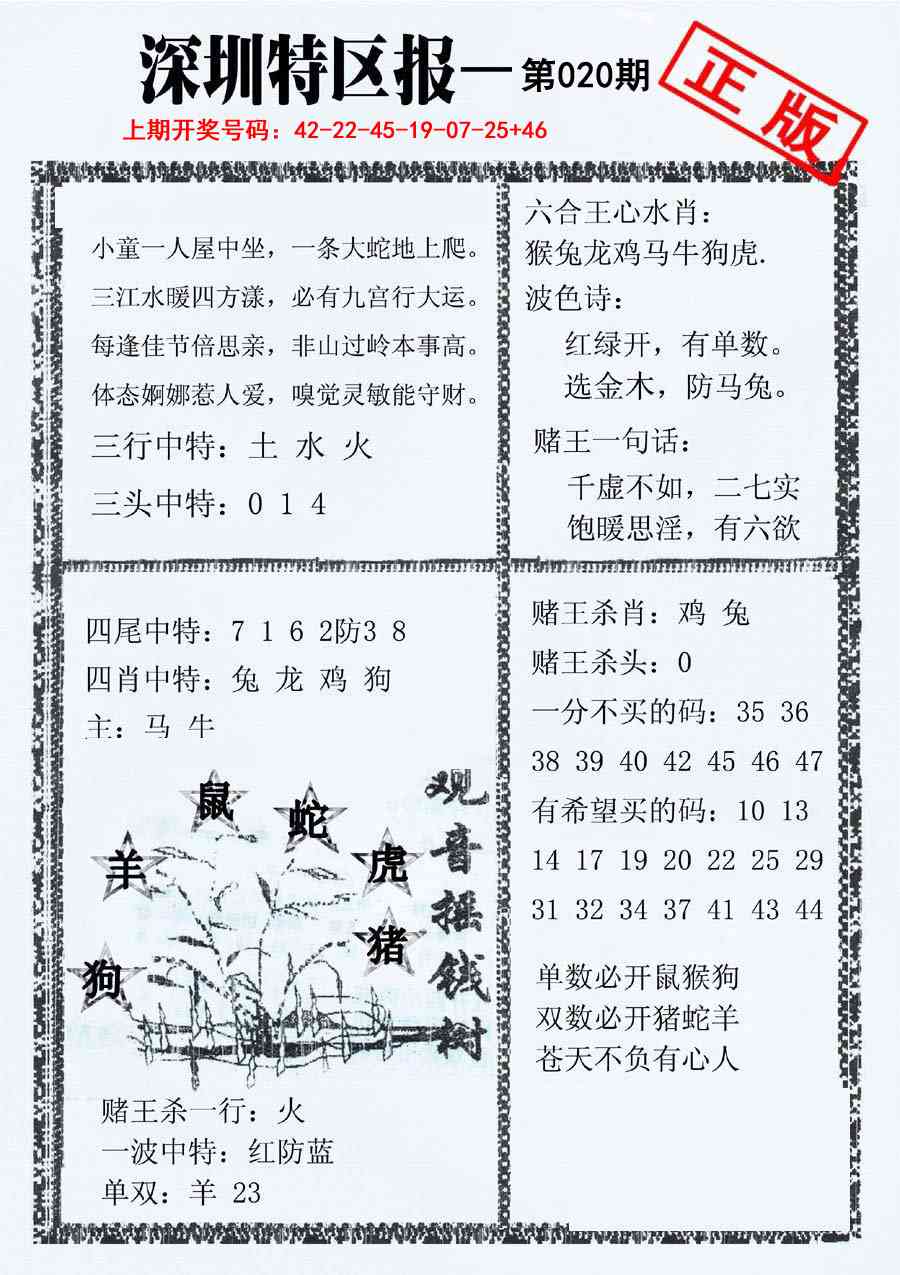 深圳特区报—第020期
正版
上期开奖号码：42-22-45-19-07-25+46
小童一人屋中坐，一条大蛇地上爬。
三江水暖四方漾，必有九宫行大运。
每逢佳节倍思亲，非山过岭本事高。
体态婀娜惹人爱，嗅觉灵敏能守财。
三行中特：土 水 火
三头中特：0 1 4
六合王心水肖：
猴兔龙鸡马牛狗虎.
波色诗：
红绿开，有单数。
选金木，防马兔。
赌王一句话：
千虚不如，二七实
饱暖思淫，有六欲
四尾中特：7 1 6 2防3 8
四肖中特：兔 龙 鸡 狗
主：马 牛
鼠
蛇
羊
虎
猪
狗
观音摇钱树
赌王杀一行：火
一波中特：红防蓝
单双：羊 23
赌王杀肖：鸡 兔
赌王杀头：0
一分不买的码：35 36
38 39 40 42 45 46 47
有希望买的码：10 13
14 17 19 20 22 25 29
31 32 34 37 41 43 44
单数必开鼠猴狗
双数必开猪蛇羊
苍天不负有心人